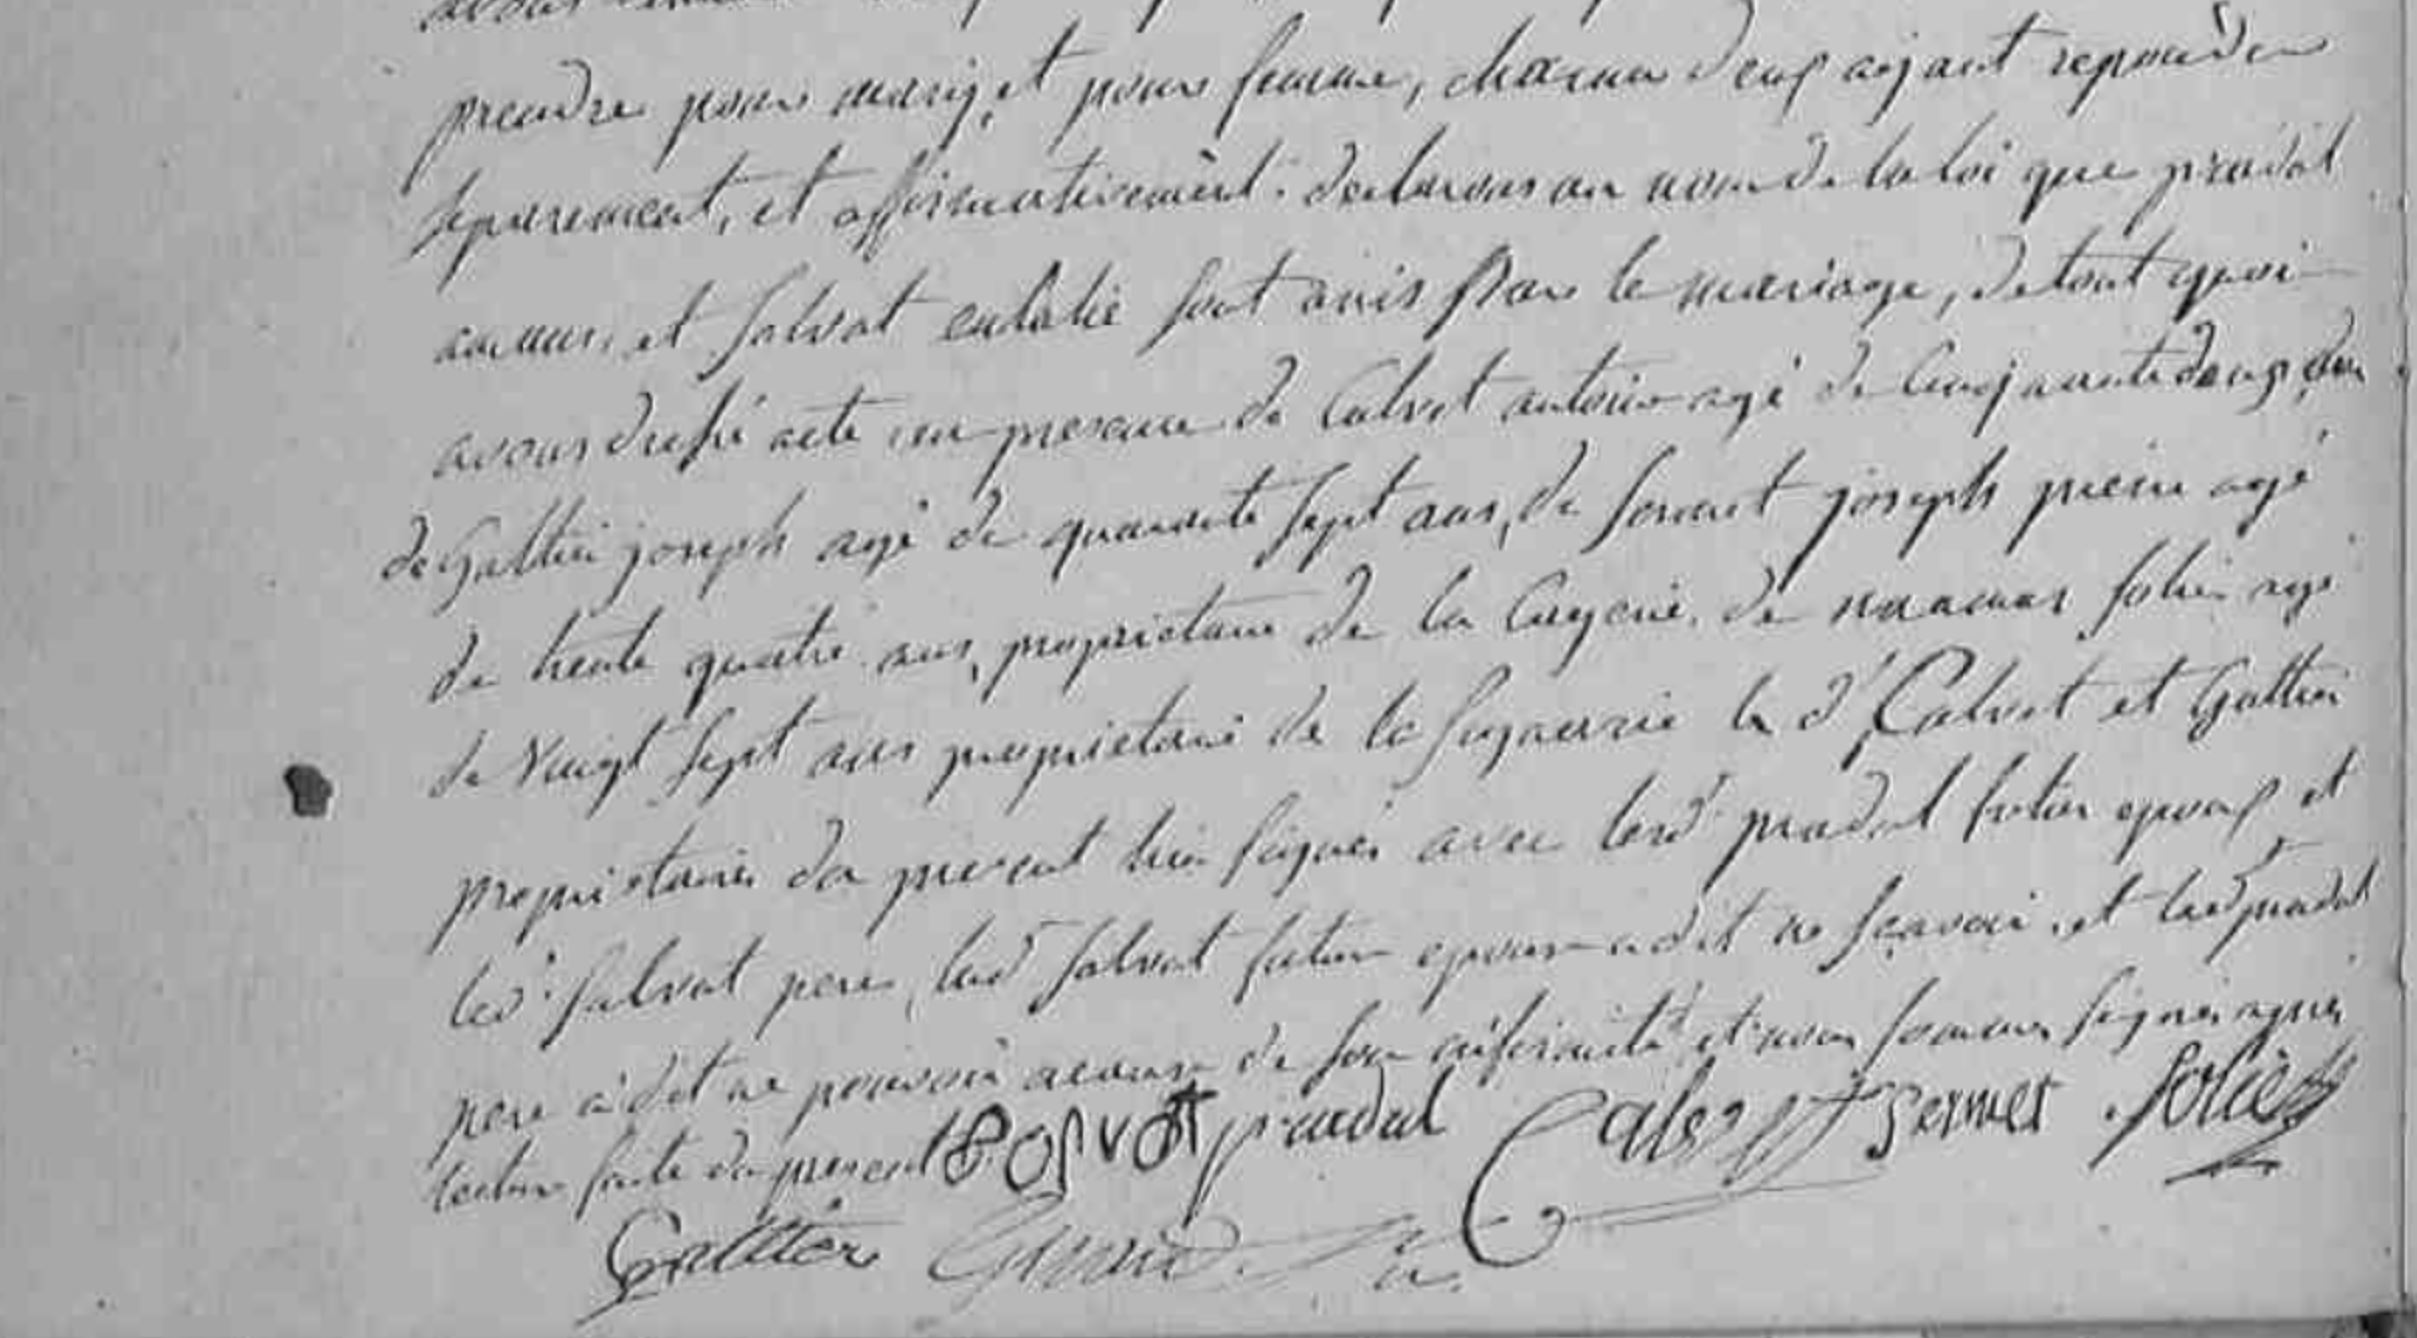 prendre pour mary, et pour femme, chacun deux ayant repondu
separement, et affirmativement. declarons au nom de la loi que pradal
et salvat eulalie sont unis par le mariage, de tout quoi
avons dressé acte en presence de Calvet antoine agé de Cinquante deux ans
de Galtier joseph agé de quarante sept ans, de joseph pierre agé
de trente quatre ans, proprietaire de la de solier agé
de Vingt sept ans proprietaire de la le d. Calvet et Galtier
proprietaires du present lieu signés avec led. pradal futur epoux et
led. salvat pere, lad. salvat future epouse a dit ne sçavoir, et led. pradal
pere a dit ne pouvoir acause de son infirmité et nous sommes signés apres
lecture faite du present. Salvat pradal Calvet Solier
Galtier